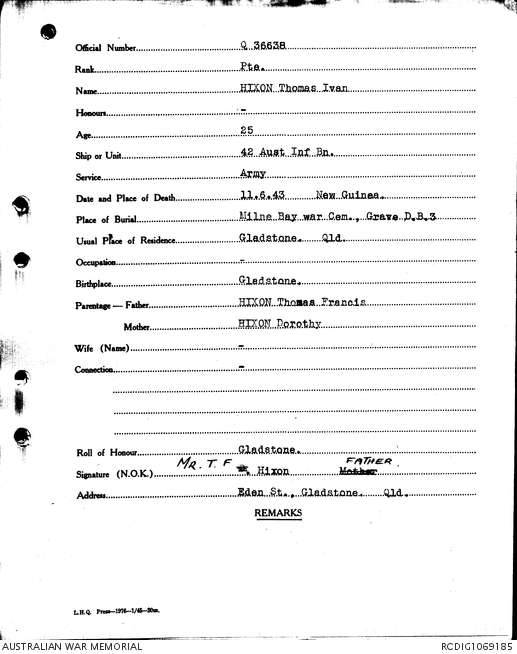 Official Number Q 36638
Rank Pte.
Name HIXON Thomas Ivan
Honours -
Age 25
Ship or Unit 42 Aust Inf Bn.
Service Army
Date and Place of Death 11.6.43 New Guinea.
Place of Burial Milne Bay war Cem., Grave D.B.3
Usual Place of Residence Gladstone. Qld.
Occupation -
Birthplace Gladstone.
Parentage — Father HIXON Thomas Francis
Mother HIXON Dorothy
Wife (Name) -
Connection -
Roll of Honour Gladstone.
Signature (N.O.K.) MR. T. F Hixon FATHER Mother
Address Eden St., Gladstone. Qld.
REMARKS
L.H.Q. Press—1976—1/45—20m.
AUSTRALIAN WAR MEMORIAL RCDIG1069185